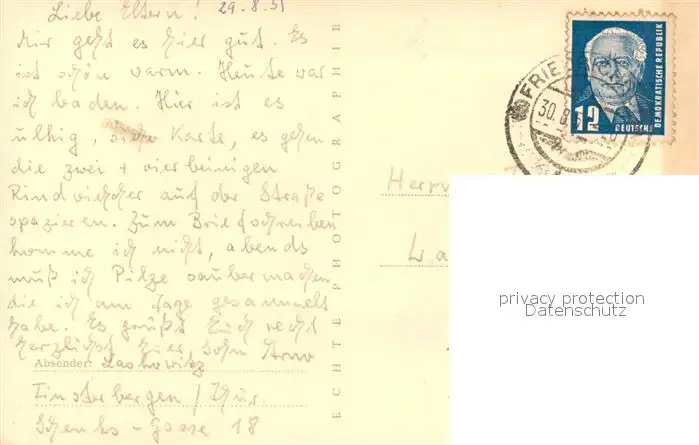 Liebe Eltern! 29.8.51
Mir geht es hier gut. Es
ist schön warm. Heute war
ich baden. Hier ist es
ulkig, siehe Karte, es gehen
die zwei + vierbeinigen
Rindviecher auf der Straße
spazieren. Zum Briefschreiben
komme ich nicht, abends
muß ich Pilze saubermachen
die ich am Tage gesammelt
habe. Es grüßt Euch recht
herzlichst Euer Sohn Arno
Absender: Laskowitz
Finsterbergen / Thür.
Schenks-Gasse 18
ECHTE PHOTOGRAPHIE
FRIE
30.8.
12
DEUTSCHE
DEMOKRATISCHE REPUBLIK
Herrn
La
privacy protection
Datenschutz